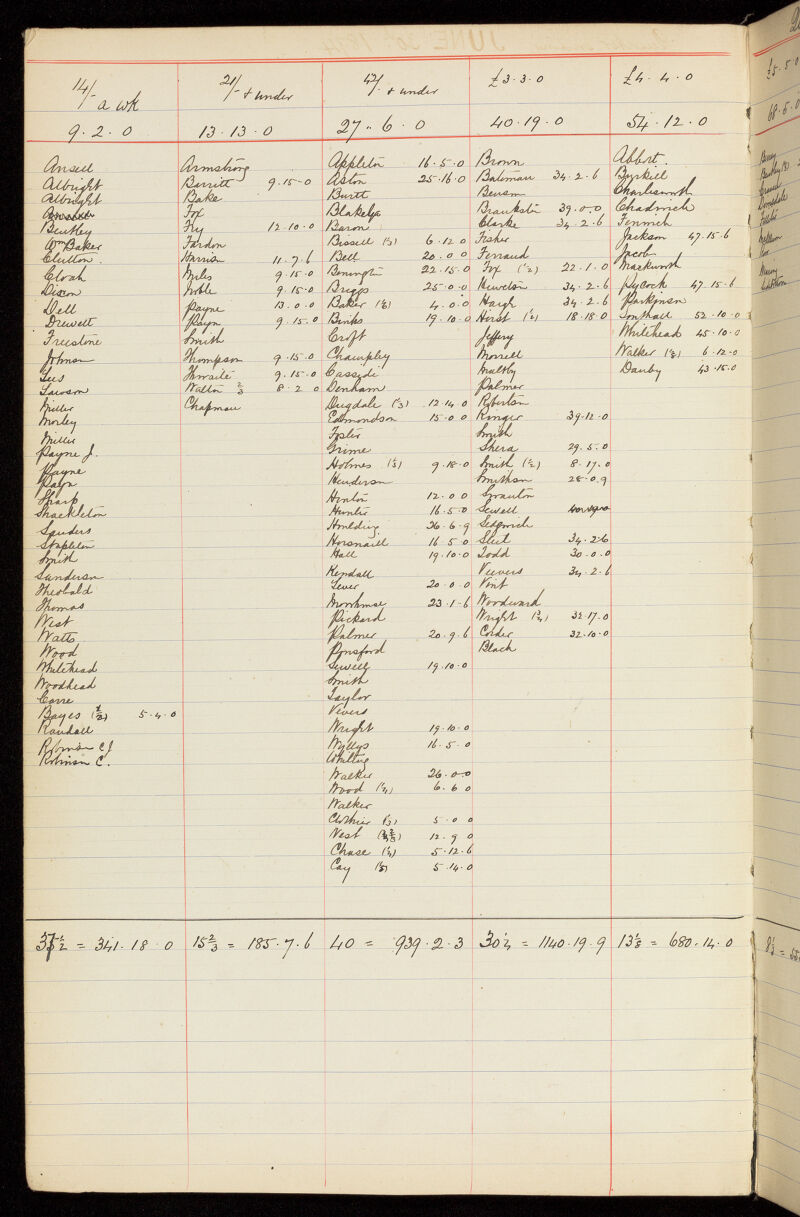 14/- a wk
9 . 2 . 0
Ansell
Albright
Albright
Bentley
Wm Baker
Clutton .
Cloak
Dixon
Dell
Drewett
Freestone
Johnson
Lees
Lawson
Miller
Morley
Miller
Payne J.
Payne
Payn
Sharp
Shackleton
Sanders
Stapleton
Smith
Sanderson
Theobald
Thomas
West
Watts
Wood
Whitehead
Woodhead
Carre
Bayes (½) 5 . 4 . 0
Randall
Robinson C J
Robinson C.
37½ = 341 . 18 . 0
21/- & under
13 . 13 . 0
Armstrong
Barritt 9 . 15 - 0
Bake
Fox
Fry 12 . 10 . 0
Fardon
Harrison 11 . 7 . 6
Miles 9 . 15 . 0
Noble 9 . 15 . 0
Payne 13 . 0 . 0
Payn 9 . 15 . 0
Smith
Thompson 9 . 15 . 0
Thwaite 9 . 15 . 0
Walton ⅔ 8 . 2 . 0
Chapman
15⅔ = 185 . 7 . 6
42/- & under
27 .. 6 . 0
Appleton 16 . 5 . 0
Aston 25 . 16 . 0
Burtt
Blakelys
Baron
Bissell (⅓) 6 . 12 . 0
Bell 20 . 0 . 0
Benington 22 . 15 . 0
Briggs 25 . 0 . 0
Baker (⅙) 4 . 0 . 0
Binks 19 . 10 . 0
Croft
Champley
Casside
Denham
Dugdale (⅓) 12 . 14 . 0
Edmondson 15 . 0 . 0
Foster
Grime
Holmes (⅓) 9 . 18 . 0
Henderson
Hinton 12 . 0 . 0
Hunter 16 . 5 . 0
Houlding 26 . 6 . 9
Horsnaill 16 . 5 . 0
Hall 19 . 10 . 0
Kendall
Lever 20 . 0 . 0
Moorhouse 23 . 1 . 6
Pickard
Palmer 20 . 9 . 6
Ponsford
Sewell 19 . 10 . 0
Smith
Taylor
Vevers
Wright 19 . 10 . 0
Wyllys 16 . 5 . 0
Whiting
Walker 26 . 0 . 0
Wood (¼) 6 . 6 . 0
Walker
Clothier (⅓) 5 . 0 . 0
West 12 . 9 . 0
Chase (¼) 5 . 12 . 6
Cay (⅓) 5 . 14 . 0
40 = 939 . 2 . 3
£3 . 3 . 0
40 . 19 . 0
Brown
Bateman 34 . 2 . 6
Benson
Brankston 39 . 0 . 0
Clarke 34 . 2 . 6
Fisher
Ferraud
Fox (½) 22 . 1 . 0
Hewetson 34 . 2 . 6
Haigh 34 . 2 . 6
Hurst (½) 18 . 18 . 0
Jeffery
Morrell
Maltby
Palmer
Roberton
Ringer 39 . 12 . 0
Smith
Shera 29 . 5 . 0
Smith (½) 8 . 17 . 0
Smithson 28 . 0 . 9
Swanton
Sewell
Sedgwick
Slut 34 . 2 . 6
Todd 30 . 0 . 0
Vievers 34 . 2 . 6
Vint
Woodward
Wright (¾) 32 . 17 . 0
Corder 32 . 10 . 0
Black
30¼ = 1140 . 19 . 9
£4 . 4 . 0
54 . 12 . 0
Abbott .
Byrkell
Charlesworth
Chadwick
Fenwick
Jackson 47 . 15 . 6
Jacob
Mackworth
Pycock 47 . 15 . 6
Parkinson
Southall 52 . 10 . 0
Whitehead 45 . 10 . 0
Walker (⅛) 6 . 12 . 0
Danby 43 . 15 . 0
13⅛ = 680 . 14 . 0
£5 . 5 . 0
68 . 5 . 0